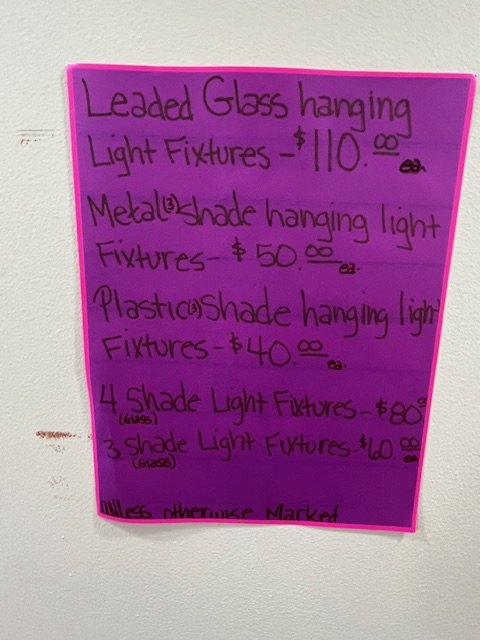 Leaded Glass hanging
Light Fixtures - $110.00 ea.
Metal (3) Shade hanging light
Fixtures - $50.00 ea.
Plastic (3) Shade hanging light
Fixtures - $40.00 ea.
4 Shade Light Fixtures - $80.00
(Glass)
3 Shade Light Fixtures - $60.00 ea
(Glass)
Unless otherwise Marked